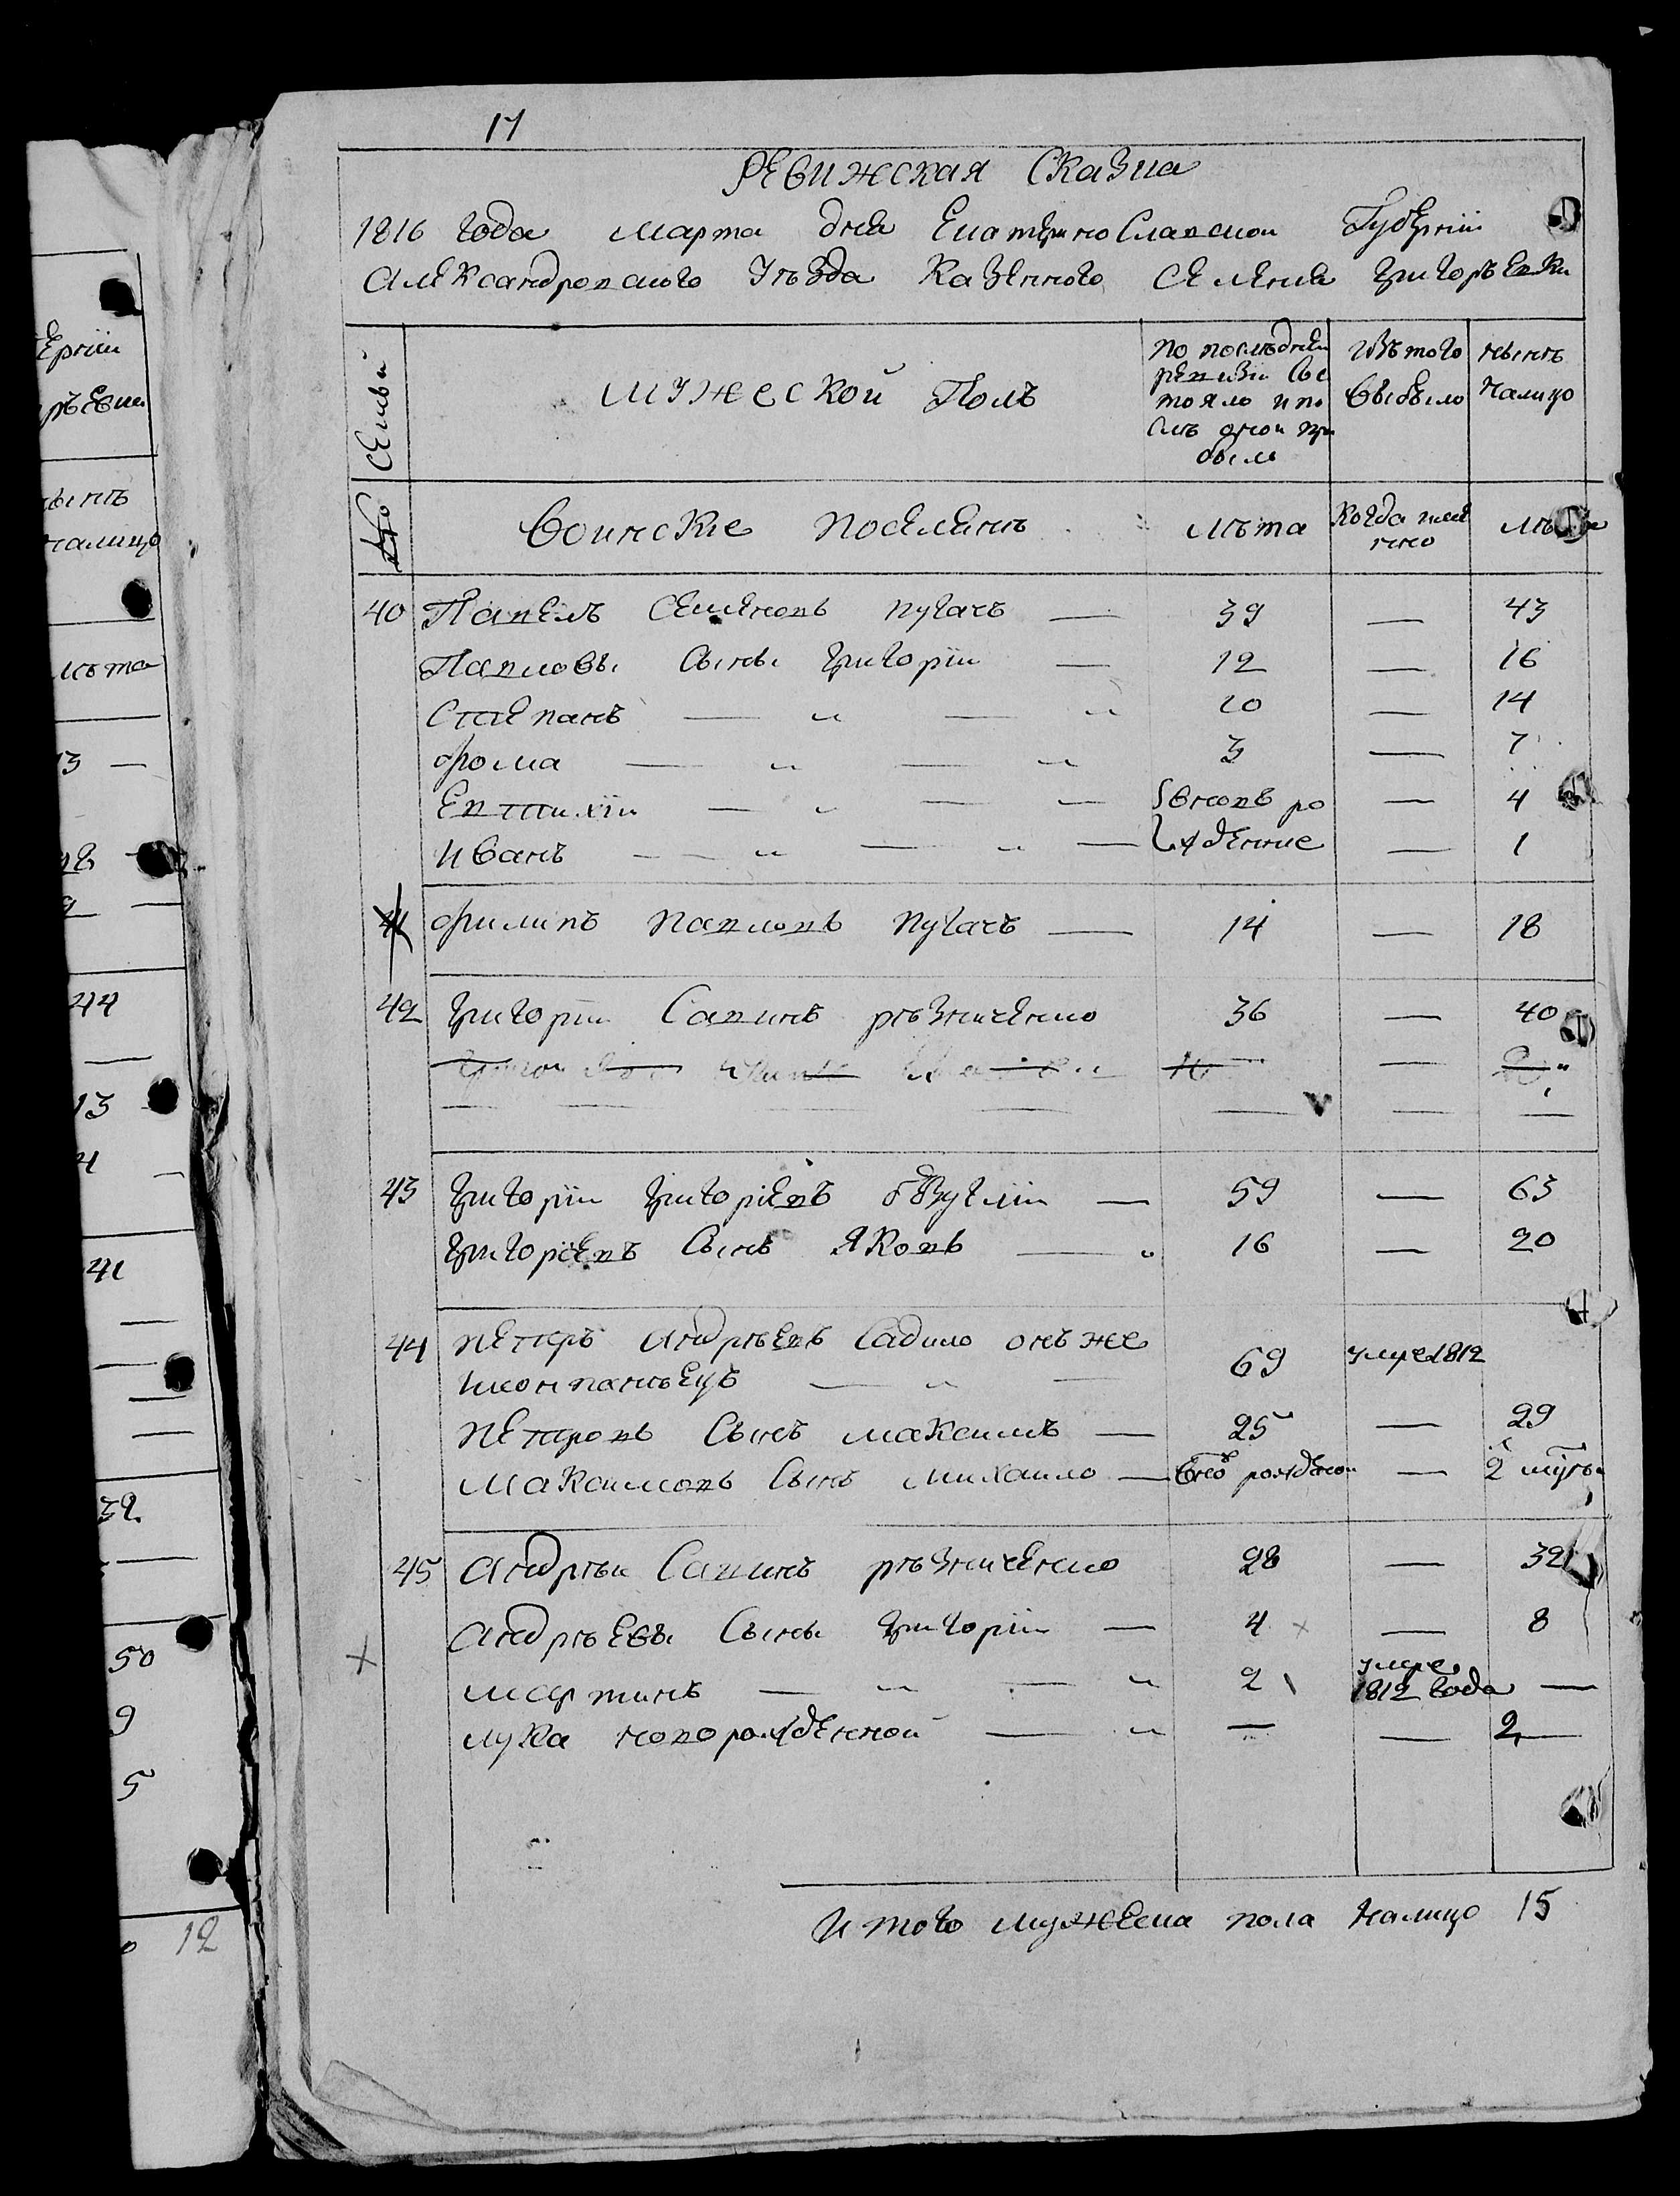 17
Ревижская Сказка
1816 года марта дня Екатеринославской Губерніи
Александровского уѣзда Казенного Селенія Григорьевки
Семьи
Мужеской Полъ
по послѣдней ревизіи состояло и послѣ оной прибыло
изъ того выбыло
нынѣ налицо
№
воинские поселянѣ
лѣта
когда именно
лѣта
40 Павелъ Семеновъ пугачъ — 39 — 43
Павловы Сыны Григорій — 12 — 16
Степанъ — „ — „ 10 — 14
фома — „ — „ 3 — 7
Евтихій — „ — — вновь ро — 4
Иванъ — „ — „ — жденние — 1
41 филипъ Павловъ пугачъ — 14 — 18
42 Григорій Савинъ рѣзниченко 36 — 40
43 Григорій Григоріевъ — 59 — 63
Григоріевъ Сынъ Яковъ — „ 16 — 20
44 петръ Андрѣевъ Садило онъ же 69 умре 1812
— „ —
петровъ Сынъ максимъ — 25 — 29
Максимовъ Сынъ михаило — внов рожденой — 2
45 Андрѣй Савинъ рѣзниченко 28 — 32
Андрѣевы Сыны Григорій — 4 × — 8
× мартинъ — „ — „ 2 умре 1812 года —
лука новорожденной — „ — — 2
И того мужеска пола налицо 15
ерніи
рьевки
нынѣ
налицо
лѣта
13 —
44
13
4
41
32
50
9
5
12